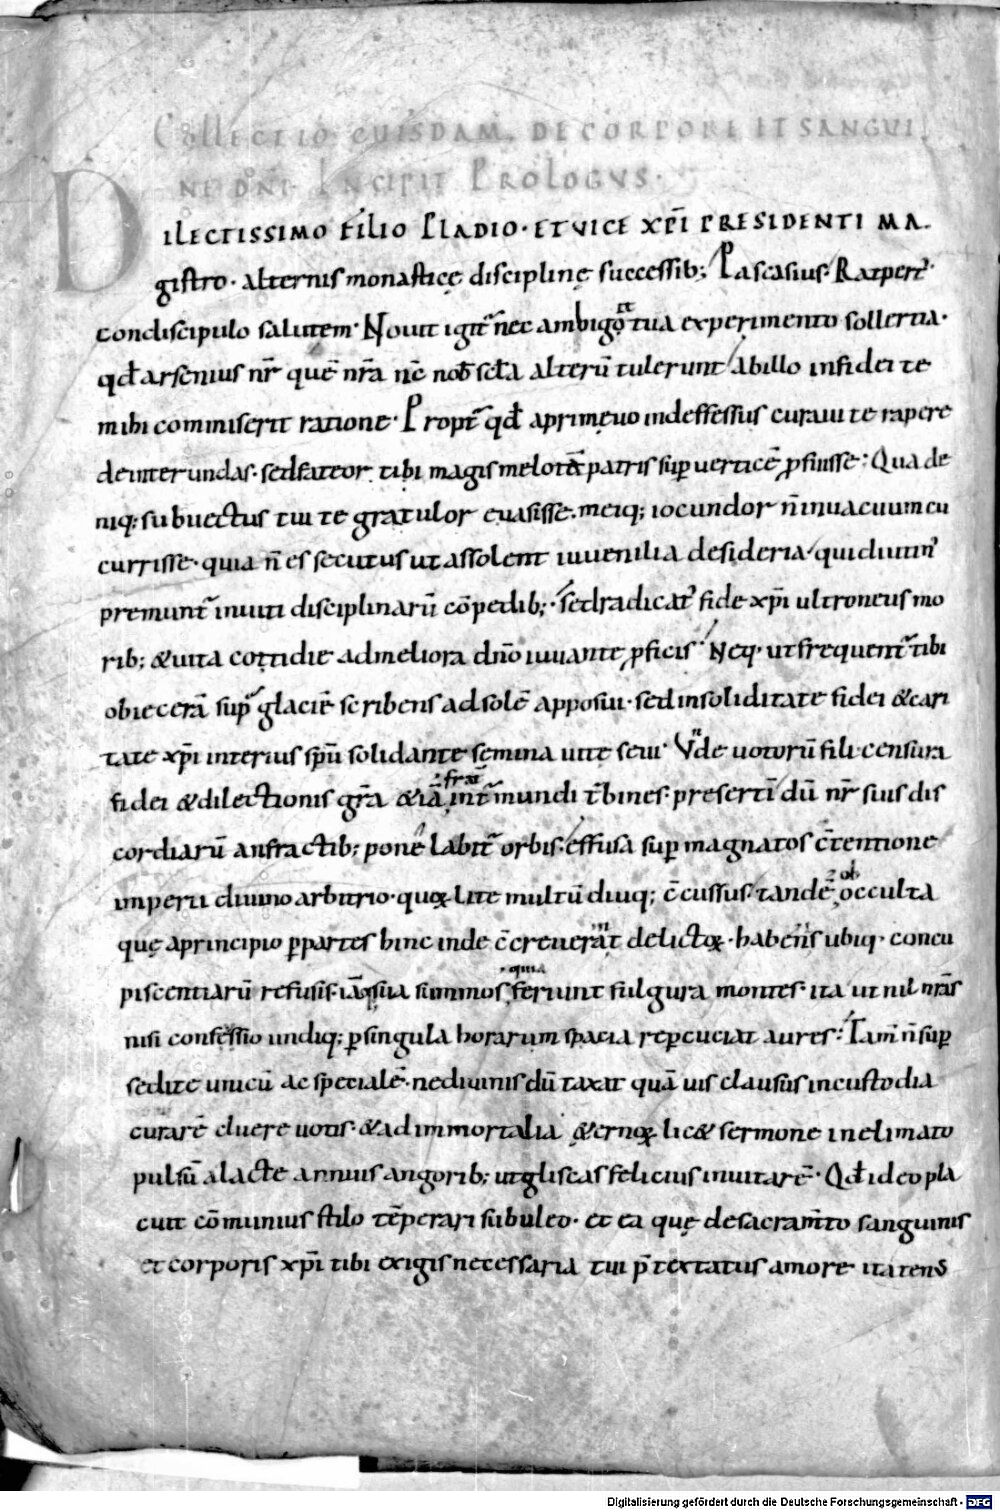 COLLECTIO CUISDAM. DE CORPORE ET SANGUI
NE DÑI. INCIPIT PROLOGUS.
DILECTISSIMO FILIO PLADIO. ET VICE XP̄I PRESIDENTI MA
gistro. alternis monasticę disciplinę successib; Pascasius Ratpert᾽
condiscipulo salutem. Nouit igit᷒ nec ambigo tua experimento sollertia.
qđ arsenius nr̄ quē nr̄a nc̄ nob̄ sc̄la alterū tulerunt ab illo in fidei te
mihi commiserit ratione. Propt᷒ qđ a primęuo indeffessus curaui te rapere
de inter undas. sed fateor tibi magis melotę patris sup uerticē ꝓfuisse. Qua de
niq; subuectus tui te gratulor euasisse. meiq; iocundor n̄ in uacuum cu
currisse. quia n̄ es secutus ut assolent iuuenilia desideria qui diutin᾽
premunt᷒ inuiti disciplinarū cōpedib; sed radicat᾽ fide xp̄i ultroneus mo
rib; & uita cottidie ad meliora dn̄o iuuante ꝓficis. Neq. ut frequent᷒ tibi
obiecerā sup glaciē scribens ad solē apposui. sed in soliditate fidei & cari
tate xp̄i interius sp̄u solidante semina uitę seui. Vn̄de uotorū fili censura
fidei & dilectionis gr̄a & iā frat̄ int᷒ mundi t᷒bines. presertī dū nr̄ suis dis
cordiarū anfractib; pone labit᷒ orbis. effusa sup magnatos c̄tentione
imperii diuino arbitrio. quoꝝ lite multū diuq; c̄cussus. tandē ob occulta
quę a principio p partes hinc inde c̄creuerant delictoꝝ. habens ubiq. concu
piscentiarū refusis. iā q̄si quia summos feriunt fulgura montes. ita ut nil nr̄as
nisi confessio undiq; p singula horarum spacia repcuciat aures. Tam̄ n̄ sup
sedi te unicū ac specialē. ne diuinis dū taxat quā uis clausus in custodia
curarē eluere uotis. & ad immortalia & ernoꝝ lic& sermone inelimato
pulsū a lacte annuis angorib; ut gliscas felicius inuitarē. Qđ ideo pla
cuit cōmunius stilo tēperari subuleo. et ea quę de sacram̄to sanguinis
et corporis xp̄i tibi exigis necessaria tui p̄textatus amore. ita tens